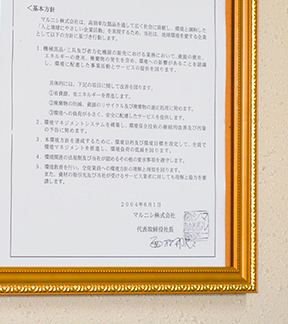 ＜基本方針＞
マルニシ株式会社は、高効率な製品を通して広く社会に貢献し、環境と調和した
「人と地球にやさしい企業活動」を実現するため、当社は、地球環境を愛する企業
として以下の方針に基づき行動します。
1．機械部品・工具及び省力化機器の販売における業務において、資源の使用、
エネルギーの使用、廃棄物の発生を含め、環境への影響があることを認識
し、環境に配慮した事業活動とサービスの提供を図ります。
具体的には、下記の項目に関して改善を図ります。
①省資源、省エネルギーを推進します。
②廃棄物の削減、資源のリサイクル及び廃棄物の適正処理に努めます。
③環境への負荷が小さく、安全に配慮したサービスを提供します。
2．環境マネジメントシステムを構築し、環境保全技術の継続的改善及び汚染
の予防に努めます。
3．本環境方針を達成するために、環境目的及び環境目標を設定して、全員で
環境マネジメントを推進し、環境負荷の低減を図ります。
4．環境関連の法規制及び当社が認めるその他の要求事項を遵守します。
5．環境教育を行い、全従業員への環境方針の理解と周知を図ります。
また、資材の取引先及び当社が受けるサービス業者に対しても理解と協力を要
請します。
2004年6月1日
マルニシ株式会社
代表取締役社長